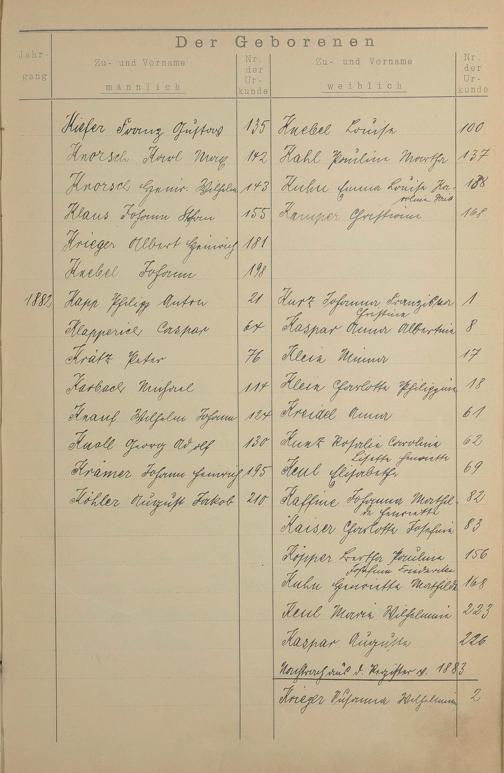 Der Geborenen
Jahr-
gang
Zu- und Vorname
männlich
Nr.
der
Ur-
kunde
Zu- und Vorname
weiblich
Nr.
der
Ur-
kunde
Kiefer Franz Gustav 135 Knebel Louise 100
Knorsch Karl Max 142 Kahl Pauline Martha 137
Knorsch Heinr. Wilhelm 143 Kuhn Emma Louise Ka-
188
Klaus Johann 155 Kemper Christiane 168
Krieger Albert Heinrich 181
Knebel Johann 198
1882 Kapp Philipp Anton 21 Kurz Johanna Franziska 1
Christine
Klapperich Caspar 64 Kaspar Anna Albertine 8
Krätz Peter 76 Klein Minna 17
Karbach Michael 114 Klein Charlotte Philippine 18
Knauf Wilhelm Johann 124 Kreidel Anna 61
Knoll Georg Adolf 130 Kunz Rosalie Caroline 62
Lisette Henriette
Krämer Johann Heinrich 195 Keul Elisabetha 69
Köhler August Jakob 210 Kaffine Johanna Mathil- 82
de Henriette
Kaiser Charlotte Josefine 83
Köpper Bertha Pauline 156
Josefine Friederike
Kuhn Henriette Mathilde 168
Keul Marie Wilhelmine 223
Kaspar Auguste 226
Nachtrag aus d. Register v. 1883
Krieger Susanna Wilhelmine 2